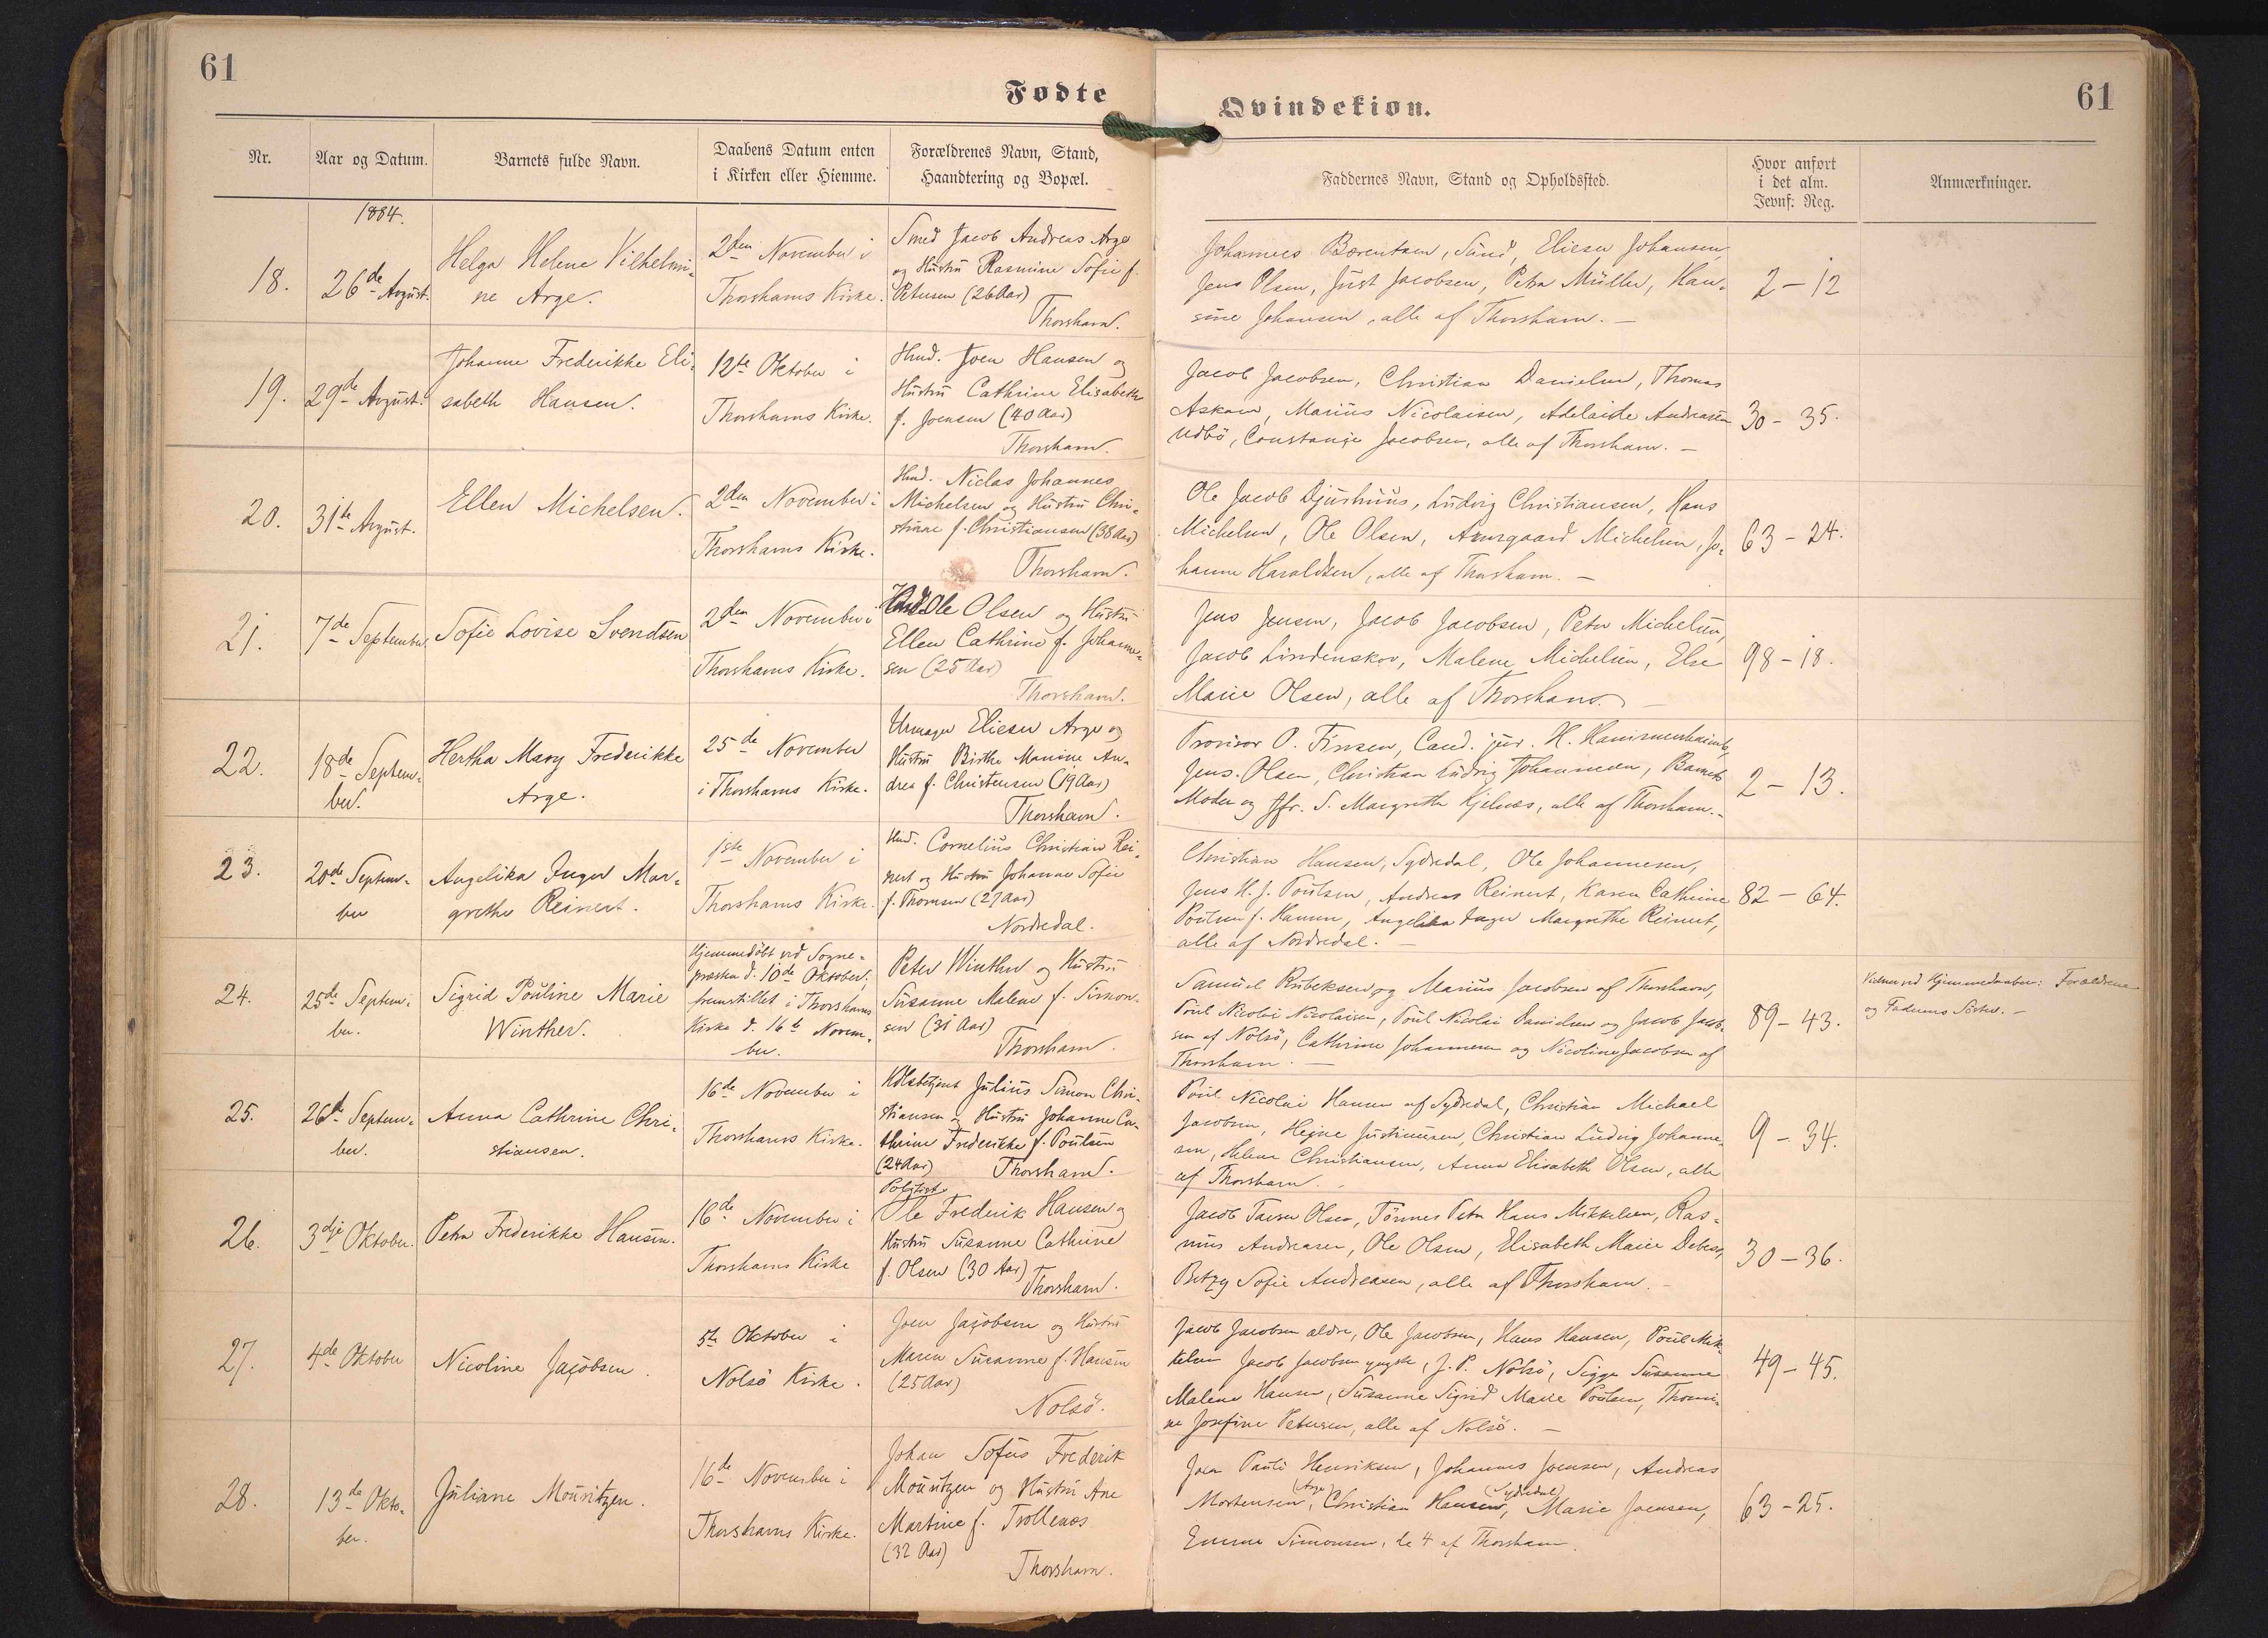 61
Fødte
Qvindekiøn.
61
Nr.
Aar og Datum.
Barnets fulde Navn.
Daabens Datum enten
i Kirken eller Hiemme.
Forældrenes Navn, Stand,
Haandtering og Bopæl.
Faddernes Navn, Stand og Opholdssted.
Hvor anført
i det alm.
Jevnf: Reg.
Anmærkninger.
1884.
18.
26de August.
Helga Helene Vilhelmi-
ne Arge.
2den November i
Thorshavns Kirke.
Smed Jacob Andreas Arge
og Hustru Rasmine Sofie f.
Petersen (26 Aar)
Thorshavn.
Johannes Bærentsen, Sund, Elieser Johansen,
Jens Olsen, Just Jacobsen, Petra Müller, Han-
sine Johansen, alle af Thorshavn. —
2 – 12
19.
29de August.
Johanne Frederikke Eli-
sabeth Hansen.
12te Oktober i
Thorshavns Kirke.
Hmd. Joen Hansen og
Hustru Cathrine Elisabeth
f. Joensen (40 Aar)
Thorshavn.
Jacob Jacobsen, Christian Danielsen, Thomas
Askam, Marius Nicolaisen, Adelaide Andreasen
Udbö, Constanse Jacobsen, alle af Thorshavn. —
30 – 35.
20.
31te August.
Ellen Michelsen.
2den November i
Thorshavns Kirke.
Hmd. Niclas Johannes
Michelsen og Hustru Chri-
stiane f. Christiansen (38 Aar)
Thorshavn.
Ole Jacob Djurhuus, Ludvig Christiansen, Hans
Michelsen, Ole Olsen, Michelsen, Jo-
hanne Haraldsen, alle af Thorshavn. —
63 – 24.
21.
7de September.
Sofie Lovise Svendsen
2den November i
Thorshavns Kirke.
Ole Olsen og Hustru
Ellen Cathrine f. Johanne-
sen (25 Aar)
Thorshavn.
Jens Jensen, Jacob Jacobsen, Peter Michelsen,
Jacob Lindenskov, Malene Michelsen, Else
Marie Olsen, alle af Thorshavn. —
98 – 18.
22.
18de Septem-
ber.
Hertha Mary Frederikke
Arge.
25de November
i Thorshavns Kirke.
Urmager Elieser Arge og
Hustru Birthe Marsine An-
drea f. Christensen (19 Aar)
Thorshavn.
Provisor O. Finsen, Cand. jur. H. Hammershaimb,
Jens Olsen, Christian Ludvig Johannesen, Barnets
Moder og Jfr. S. Margrethe Kjelnæs, alle af Thorshavn. –
2 – 13.
23.
20de Septem-
ber
Angelika Inger Mar-
grethe Reinert.
1ste November i
Thorshavns Kirke.
Hmd. Cornelius Christian Rei-
nert og Hustru Johanne Sofie
f. Thomsen (27 Aar)
Nordredal.
Christian Hansen, Sydredal, Ole Johannesen,
Jens H. J. Poulsen, Andreas Reinert, Karen Cathrine
Poulsen f. Hansen, Angelika Inger Margrethe Reinert,
alle af Nordredal. —
82 – 64.
24.
25de Septem-
ber.
Sigrid Pouline Marie
Winther.
Hjemmedöbt ved Sogne-
præsten d. 10de Oktober;
fremstillet i Thorshavns
Kirke d. 16de Novem-
ber.
Peter Winther og Hustru
Susanne Malene f. Simon-
sen (31 Aar)
Thorshavn.
Samuel Rubeksen og Marius Jacobsen af Thorshavn,
Poul Nicolai Nicolaisen, Poul Nicolai Danielsen og Jacob Jacob-
sen af Nolsö, Cathrine Johannesen og Nicoline Jacobsen af
Thorshavn. —
89 – 43.
Vidner ved Hjemmedaaben: Forældrene
og Faderens Söster. –
25.
26de Septem-
ber.
Anna Cathrine Chri-
stiansen.
16de November i
Thorshavns Kirke.
Julius Simon Chri-
stiansen og Hustru Johanne Ca-
thrine Frederikke f. Poulsen
(24 Aar)
Thorshavn.
Poul Nicolai Hansen af Sydredal, Christian Michael
Jacobsen, Hejne Justinussen, Christian Ludvig Johanne-
sen, Helene Christiansen, Anna Elisabeth Olsen, alle
af Thorshavn.
9 – 34.
26.
3dje Oktober.
Petra Frederikke Hansen.
16de November i
Thorshavns Kirke
Politibt.
Ole Frederik Hansen og
Hustru Susanne Cathrine
f. Olsen (30 Aar)
Thorshavn.
Jacob Olsen, Tönnes Peter Hans Mikkelsen, Ras-
mus Andreasen, Ole Olsen, Elisabeth Marie Debess,
Betzy Sofie Andreasen, alle af Thorshavn. –
30 – 36.
27.
4de Oktober
Nicoline Jacobsen.
5te Oktober i
Nolsö Kirke.
Joen Jacobsen og Hustru
Maren Susanne f. Hansen
(25 Aar)
Nolsö.
Jacob Jacobsen ældre, Ole Jacobsen, Hans Hansen, Poul Mik-
kelsen Jacob Jacobsen yngste, J. P. Nolsö, Sigga Susanne
Malene Hansen, Susanne Sigrid Marie Poulsen, Thomi-
ne Josefine Petersen, alle af Nolsö. —
49 – 45.
28.
13de Okto-
ber.
Juliane Mouritzen.
16de November i
Thorshavns Kirke.
Johan Sofus Frederik
Mouritzen og Hustru Ane
Martine f. Trollenæs
(32 Aar)
Thorshavn.
Joen Pauli Henriksen, Johannes Joensen, Andreas
Mortensen, (Arge) Christian Hansen, (Sydredal) Marie Joensen,
Emma Simonsen, de 4 af Thorshavn.
63 – 25.